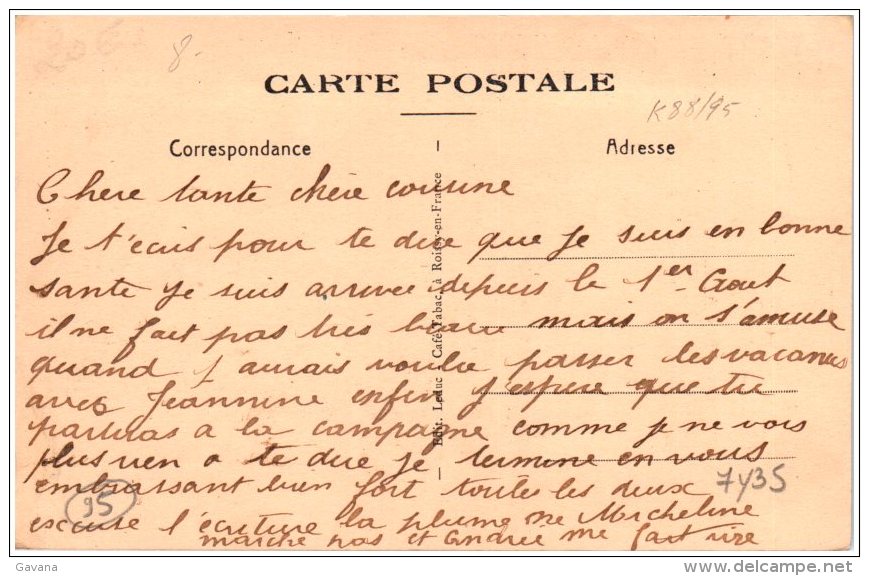 8-
CARTE POSTALE
K88/95
Correspondance
Adresse
Edit. Leduc - Café-Tabac, à Roissy-en-France
Chere tante chère cousine
Je t'ecris pour te dire que je suis en bonne
sante je suis arrivee depuis le 1er Aout
il ne fait pas très beau mais on s'amuse
quand j'aurais voulu passer les vacances
avec Jeannine enfin j'espere que tu
partiras a la campagne comme je ne vois
plus rien a te dire je termine en vous
embrassant bien fort toutes les deux
7435
95
excuse l'écriture la plume ne Micheline
marche pas et Andree me fait rire
Gavana
delcampe.net